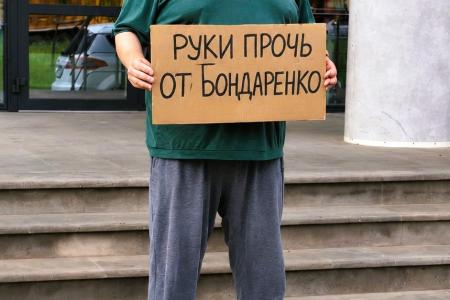 РУКИ ПРОЧЬ
ОТ БОНДАРЕНКО